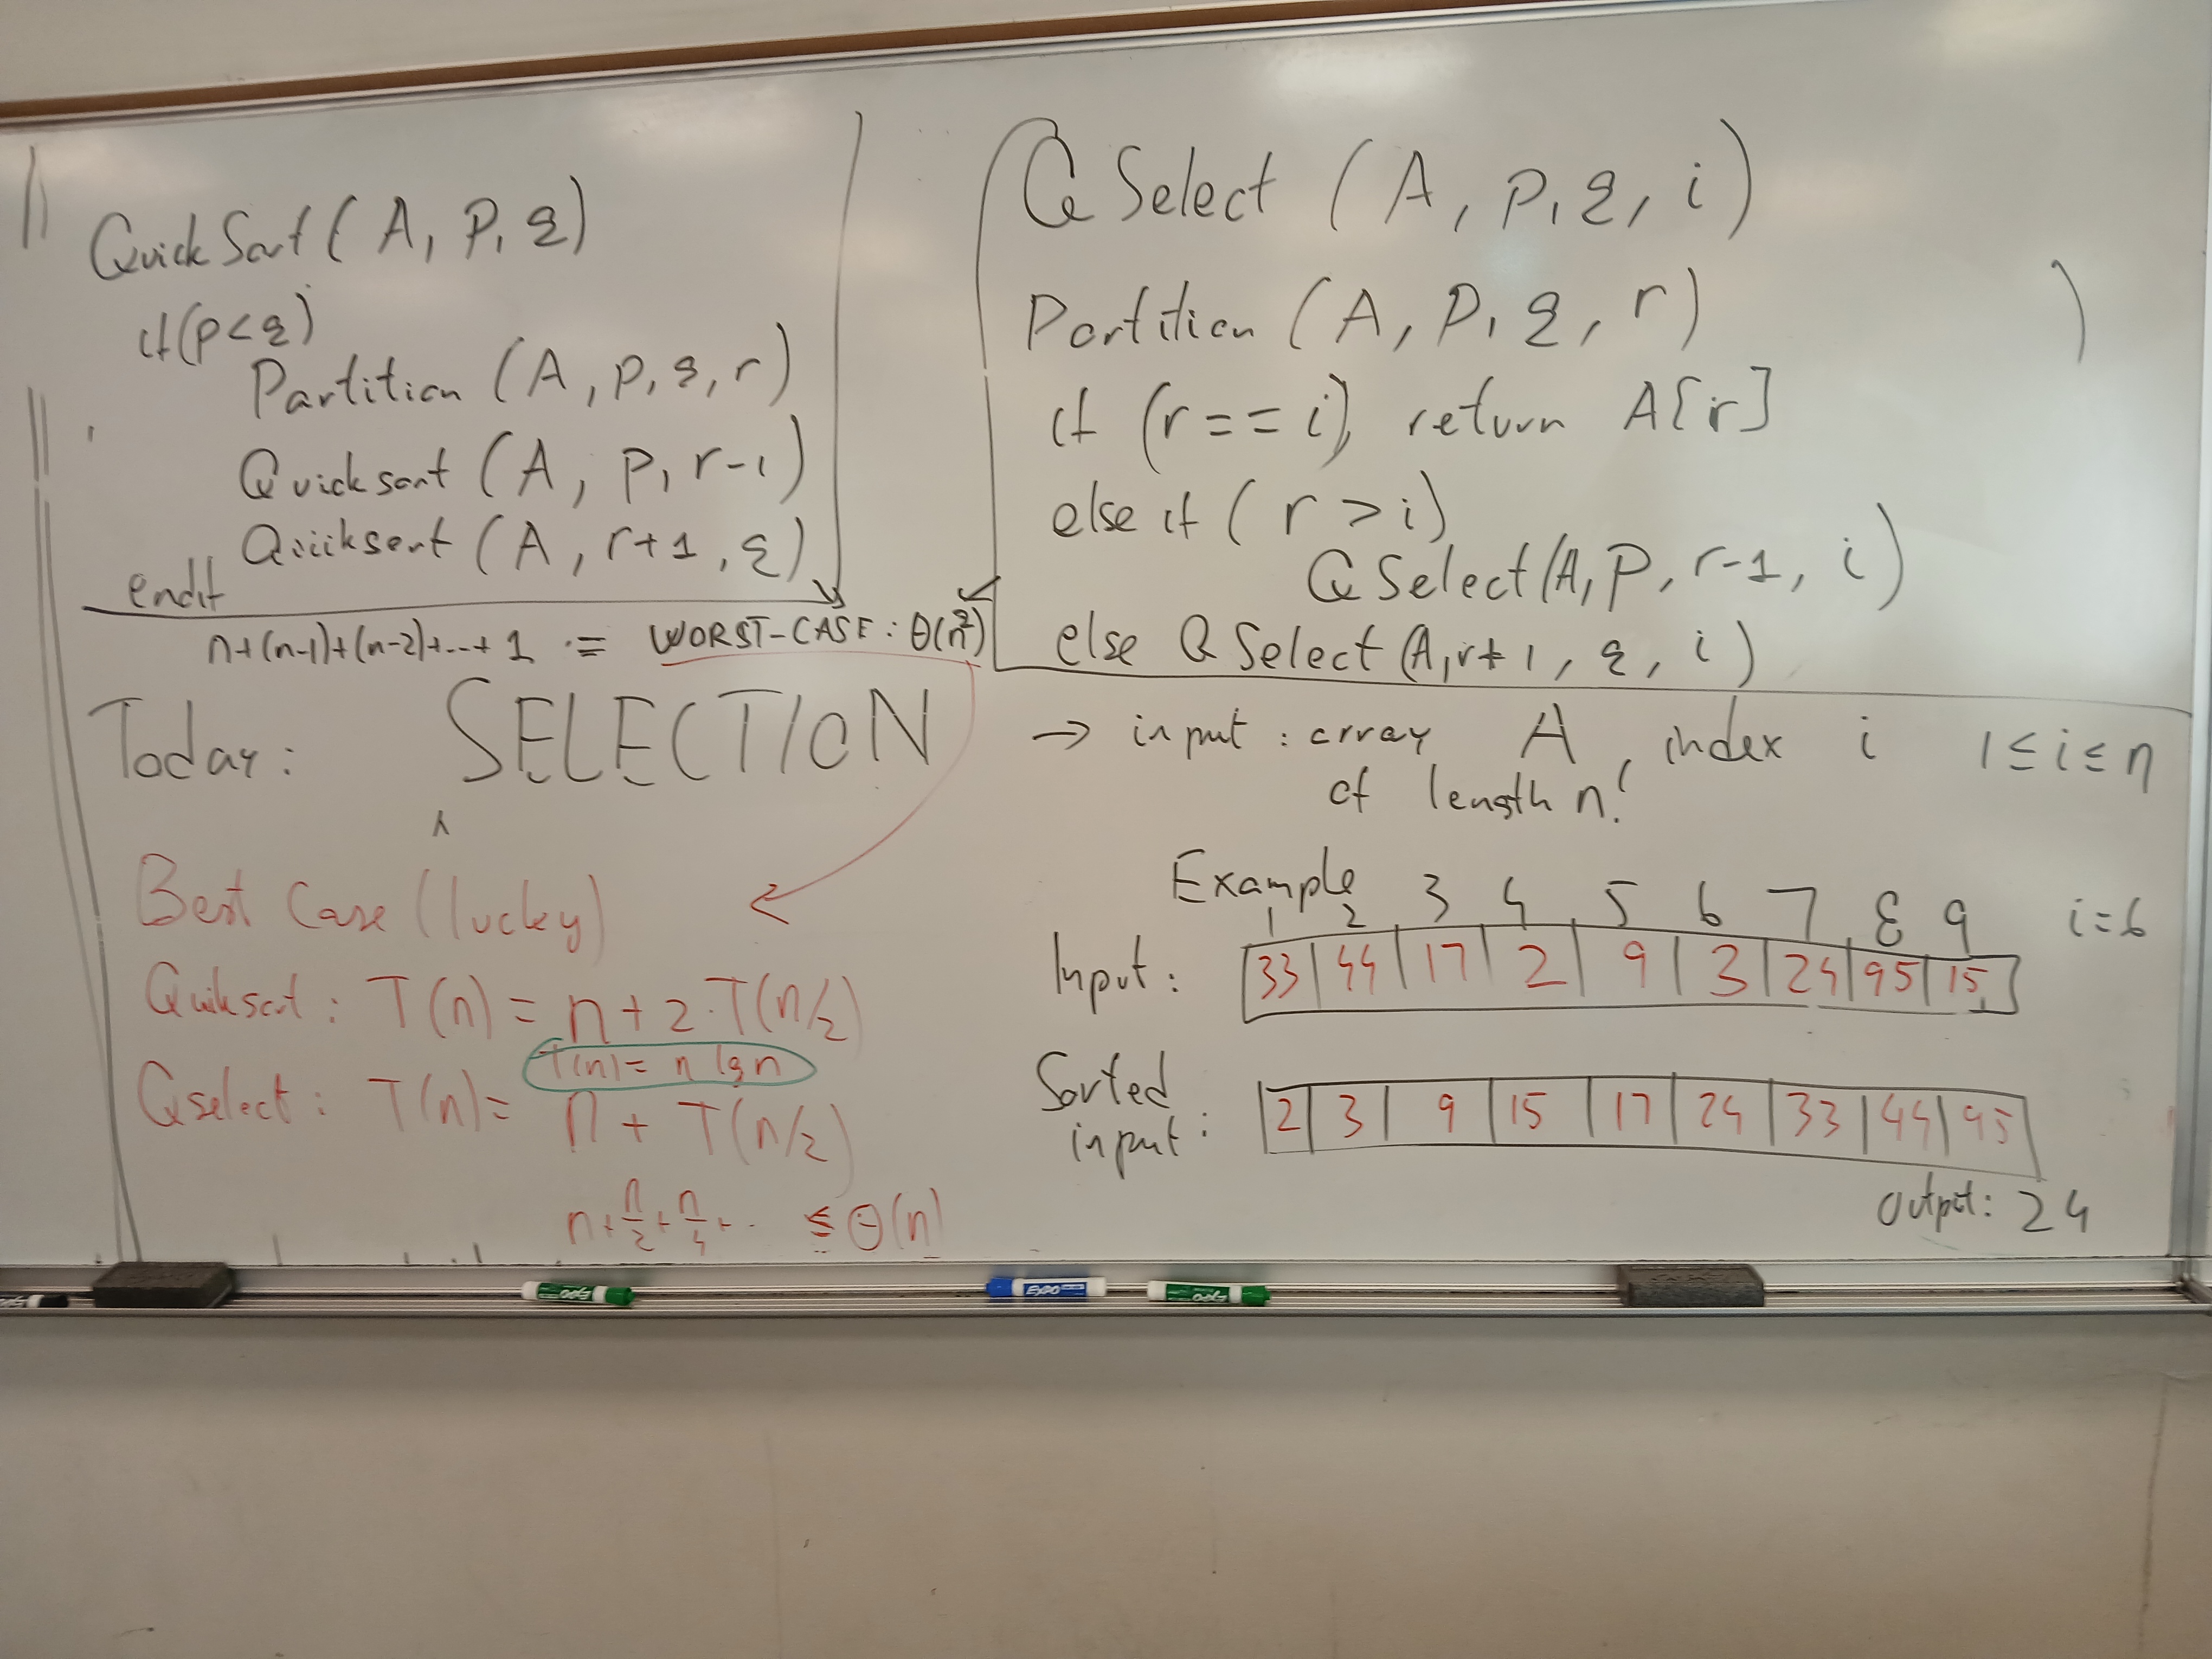 QuickSort(A, p, q)
if(p<q)
Partition (A, p, q, r)
Quicksort (A, p, r-1)
Quiksort (A, r+1, q)
endif
n+(n-1)+(n-2)+...+ 1 := WORST-CASE: Θ(n²)
QSelect (A, p, q, i)
Partition (A, p, q, r)
if (r == i), return A[r]
else if (r > i)
QSelect(A, p, r-1, i)
else QSelect(A, r+1, q, i)
Today: SELECTION → input: array A, index i 1≤i≤n
of length n!
Best Case (lucky)
Quiksort: T(n) = n + 2·T(n/2)
T(n)= n lg n
Qselect: T(n)= n + T(n/2)
n+n/2+n/4+.. ≤ Θ(n)
Example
1 2 3 4 5 6 7 8 9 i=6
Input: 33 44 17 2 9 3 24 95 15
Sorted
input: 2 3 9 15 17 24 33 44 95
Output: 24
EXPO
EXPO
EXPO